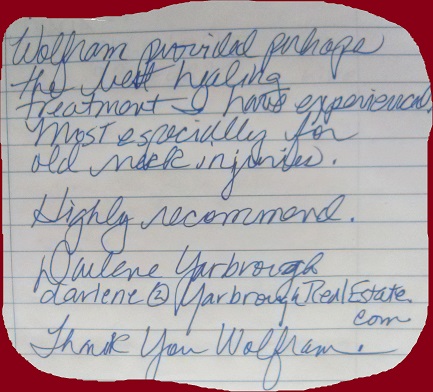 Wolfram provided perhaps
the best healing
treatment I have experienced.
Most especially for
old neck injuries.
Highly recommend.
Darlene Yarbrough
darlene@YarbroughRealEstate.
com
Thank You Wolfram.